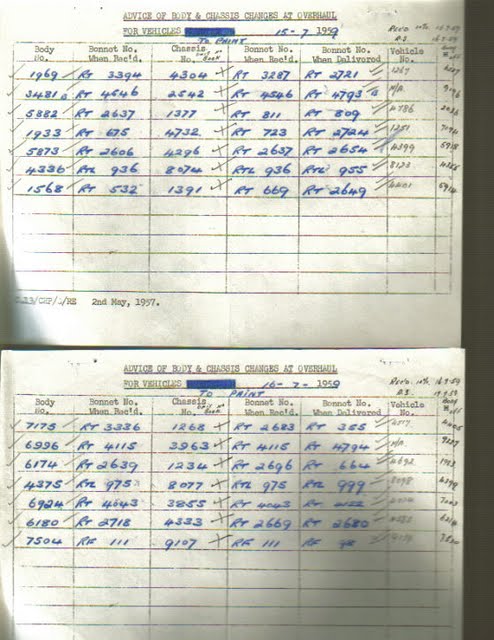 ADVICE OF BODY & CHASSIS CHANGES AT OVERHAUL
FOR VEHICLES 15-7 1959 Rec'd 16.7.59
TO PAINT
Body No. Bonnet No. When Rec'd. Chassis No. Bonnet No. When Rec'd. Bonnet No. When Delivered Vehicle No.
1969 RT 3394 4304 RT 3287 RT 2721 1267
3481 RT 4546 2542 RT 4546 RT 4793 N/A
5882 RT 2637 1377 RT 811 RT 809 4786
1933 RT 675 4732 RT 723 RT 2724 1251
5873 RT 2606 4296 RT 2637 RT 2654 4399
4336 RTL 936 8074 RTL 936 RTL 955 8123
1568 RT 532 1391 RT 669 RT 2649 4401
2nd May, 1957.
ADVICE OF BODY & CHASSIS CHANGES AT OVERHAUL
FOR VEHICLES 16-7 1959 Rec'd
TO PAINT
Body No. Bonnet No. When Rec'd. Chassis No. Bonnet No. When Rec'd. Bonnet No. When Delivered Vehicle No.
7175 RT 3336 1268 RT 2683 RT 355
6996 RT 4115 3963 RT 4115 RT 4794 N/A
6174 RT 2639 1234 RT 2696 RT 664 4692
4375 RTL 975 8077 RTL 975 RTL 999 8098
6924 RT 4043 3855 RT 4043 RT 4122
6180 RT 2718 4333 RT 2669 RT 2680
7504 RF 111 9107 RF 111 RF